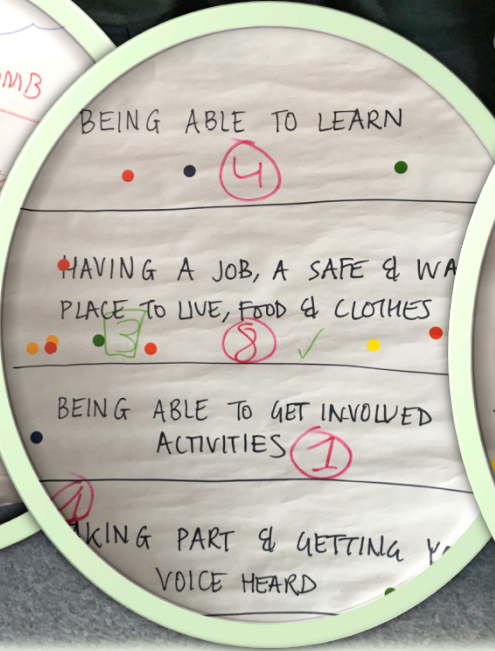 MB
BEING ABLE TO LEARN
4
HAVING A JOB, A SAFE & WA
PLACE TO LIVE, FOOD & CLOTHES
3 8
BEING ABLE TO GET INVOLVED
ACTIVITIES 1
1
AKING PART & GETTING YO
VOICE HEARD